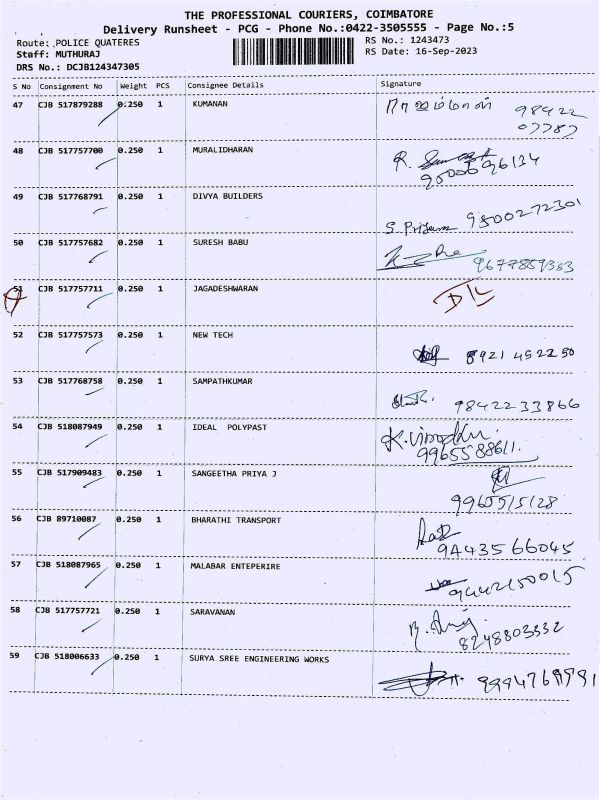 THE PROFESSIONAL COURIERS, COIMBATORE
Delivery Runsheet - PCG - Phone No.:0422-3505555 - Page No.:5
Route: POLICE QUATERES RS No.: 1243473
Staff: MUTHURAJ RS Date: 16-Sep-2023
DRS No.: DCJB124347305
S No Consignment No Weight PCS Consignee Details Signature
47 CJB 517879288 0.250 1 KUMANAN ராஜம்மாள் 98422
07787
48 CJB 517757700 0.250 1 MURALIDHARAN R.
9500696134
49 CJB 517768791 0.250 1 DIVYA BUILDERS
S. 9500272301
50 CJB 517757682 0.250 1 SURESH BABU
9677859383
51 CJB 517757711 0.250 1 JAGADESHWARAN D/L
52 CJB 517757573 0.250 1 NEW TECH
8921 452250
53 CJB 517768758 0.250 1 SAMPATHKUMAR
9842233866
54 CJB 518087949 0.250 1 IDEAL POLYPAST K.
9965588611.
55 CJB 517909483 0.250 1 SANGEETHA PRIYA J
9965515128
56 CJB 89710087 0.250 1 BHARATHI TRANSPORT
9443566045
57 CJB 518087965 0.250 1 MALABAR ENTEPERIRE
9442150015
58 CJB 517757721 0.250 1 SARAVANAN
8248803332
59 CJB 518006633 0.250 1 SURYA SREE ENGINEERING WORKS
9994769991